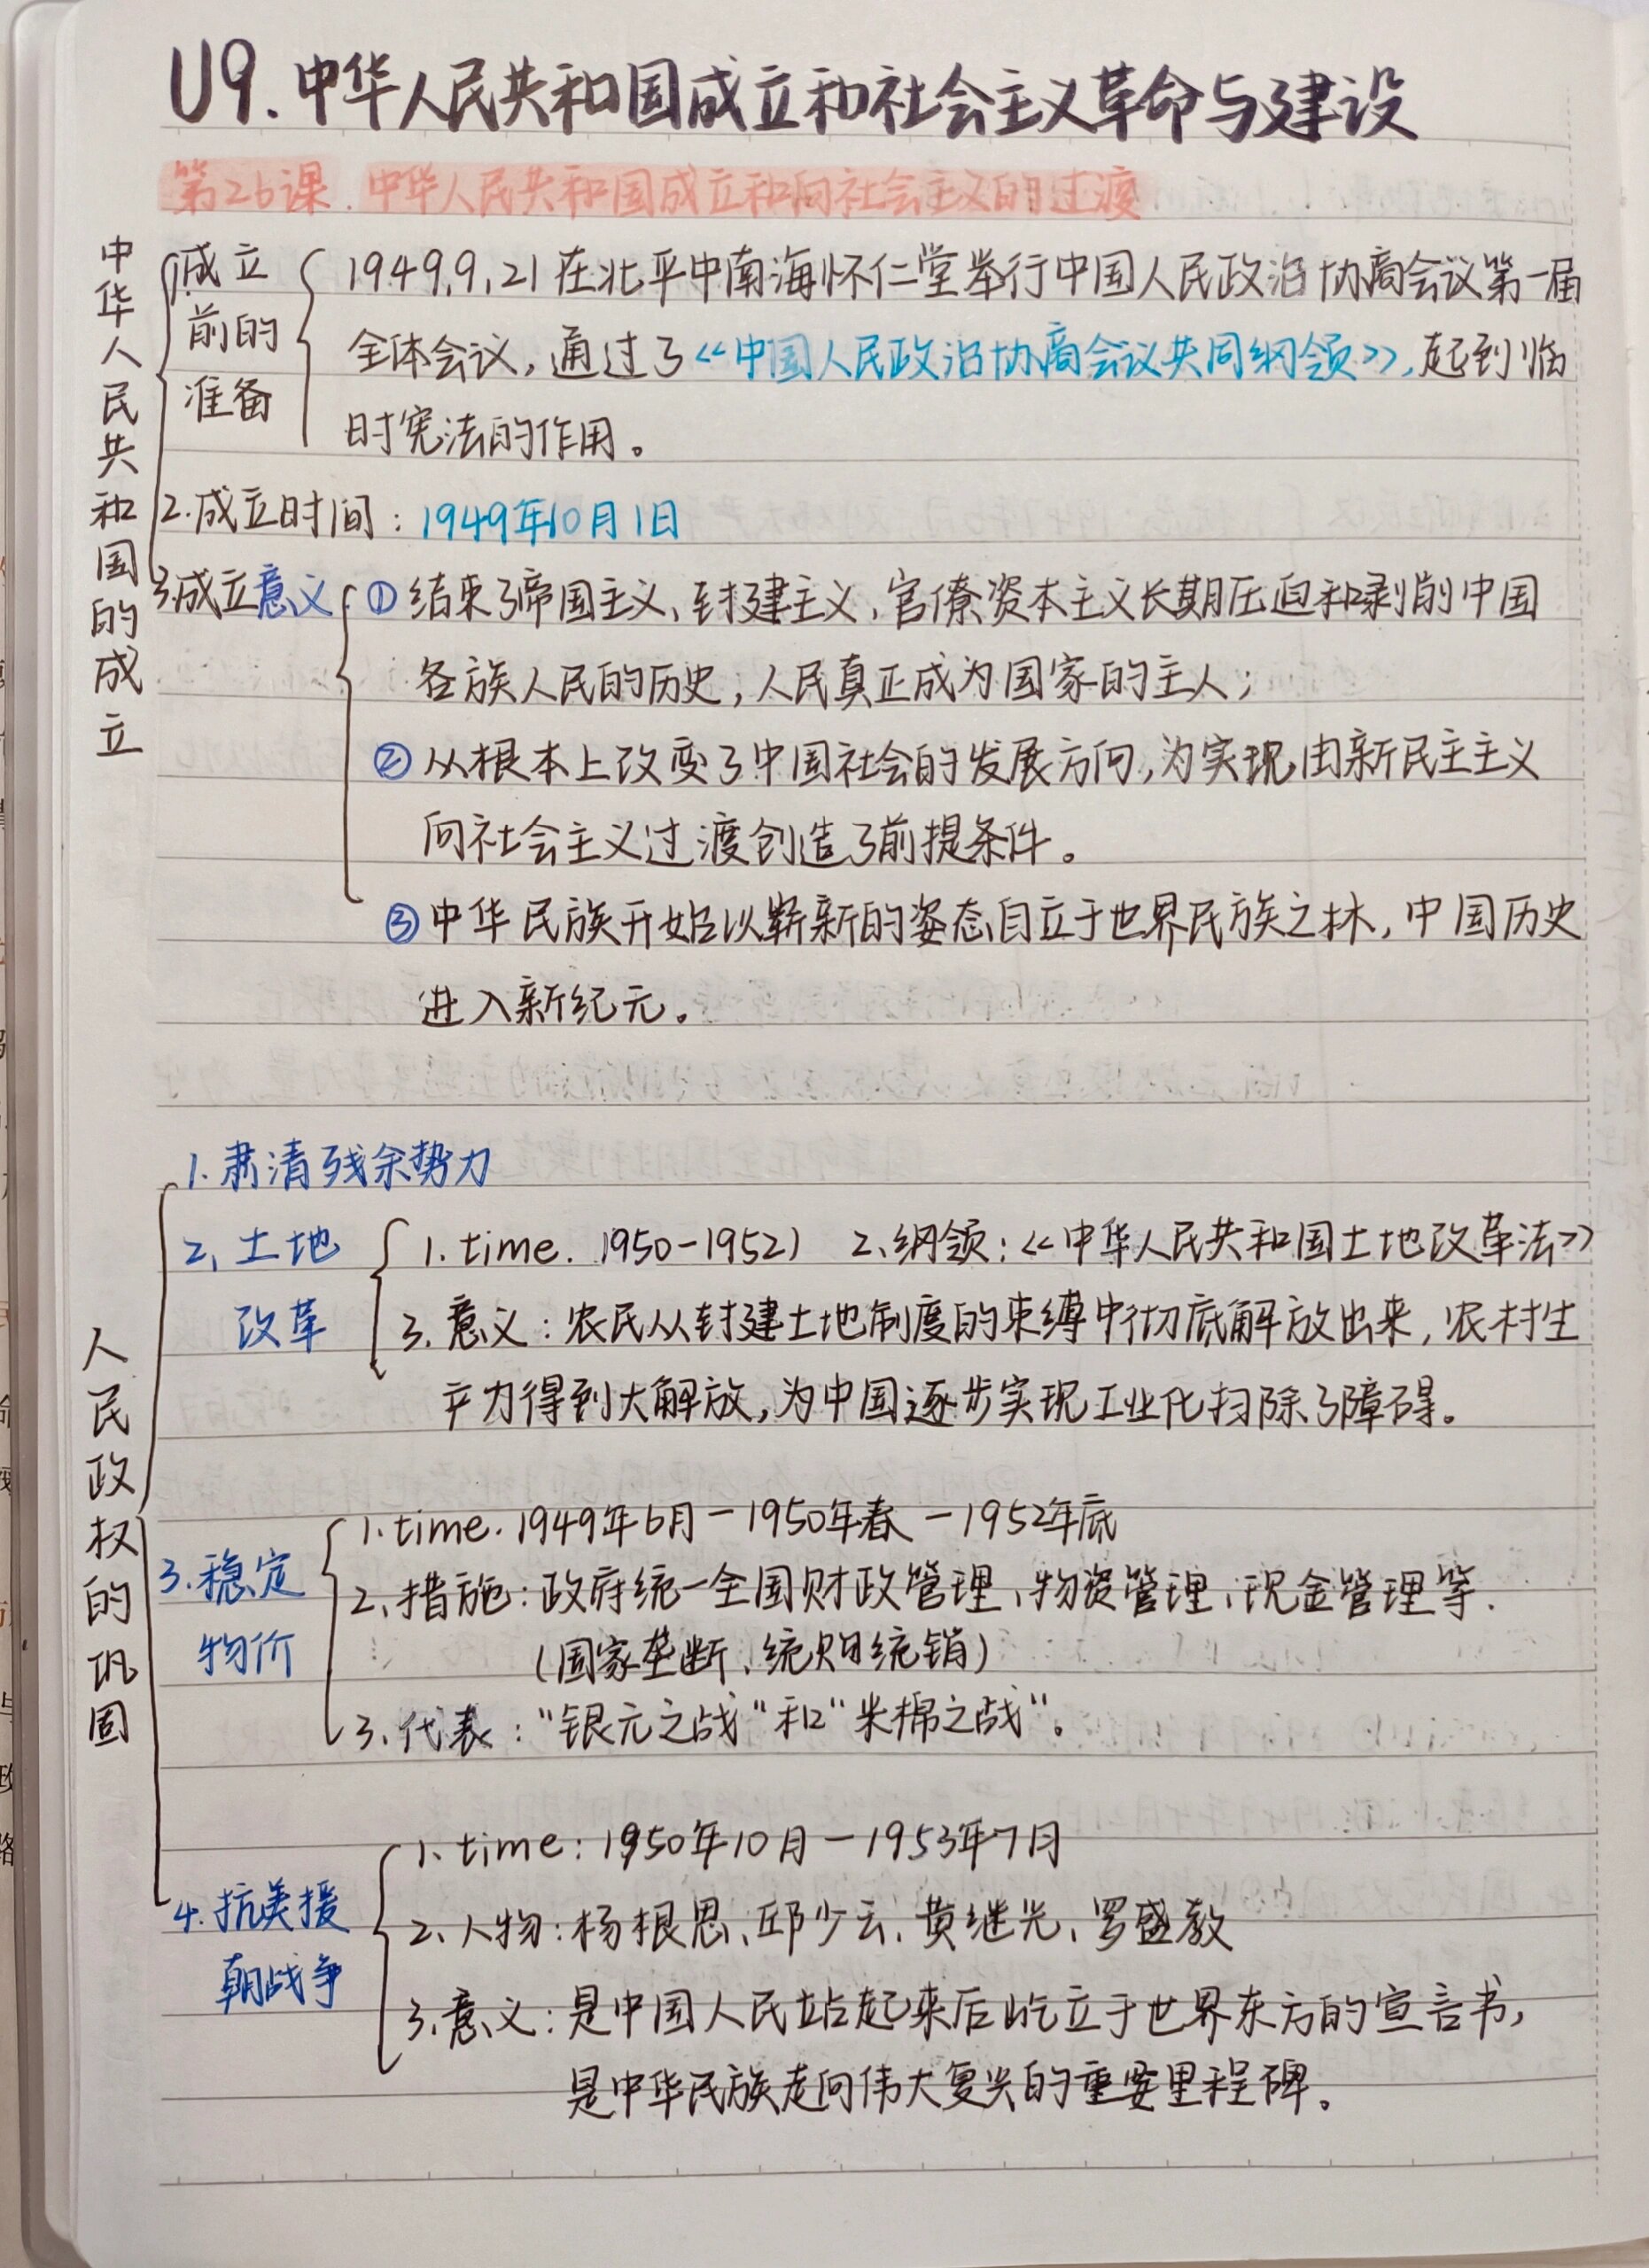 U9.中华人民共和国成立和社会主义革命与建设
第26课.中华人民共和国成立和向社会主义的过渡
中华人民共和国的成立
1.成立前的准备
1949.9.21在北平中南海怀仁堂举行中国人民政治协商会议第一届
全体会议,通过了《中国人民政治协商会议共同纲领》,起到临
时宪法的作用。
2.成立时间:1949年10月1日
3.成立意义
①结束了帝国主义、封建主义、官僚资本主义长期压迫和剥削中国
各族人民的历史,人民真正成为国家的主人;
②从根本上改变了中国社会的发展方向,为实现由新民主主义
向社会主义过渡创造了前提条件。
③中华民族开始以崭新的姿态自立于世界民族之林,中国历史
进入新纪元。
人民政权的巩固
1.肃清残余势力
2.土地
改革
1.time.1950-1952) 2.纲领:《中华人民共和国土地改革法》
3.意义:农民从封建土地制度的束缚中彻底解放出来,农村生
产力得到大解放,为中国逐步实现工业化扫除了障碍。
3.稳定
物价
1.time.1949年6月-1950年春-1952年底
2.措施:政府统一全国财政管理、物资管理、现金管理等.
(国家垄断、统购统销)
3.代表:"银元之战"和"米棉之战"。
4.抗美援
朝战争
1.time:1950年10月-1953年7月
2.人物:杨根思、邱少云、黄继光、罗盛教
3.意义:是中国人民站起来后屹立于世界东方的宣言书,
是中华民族走向伟大复兴的重要里程碑。